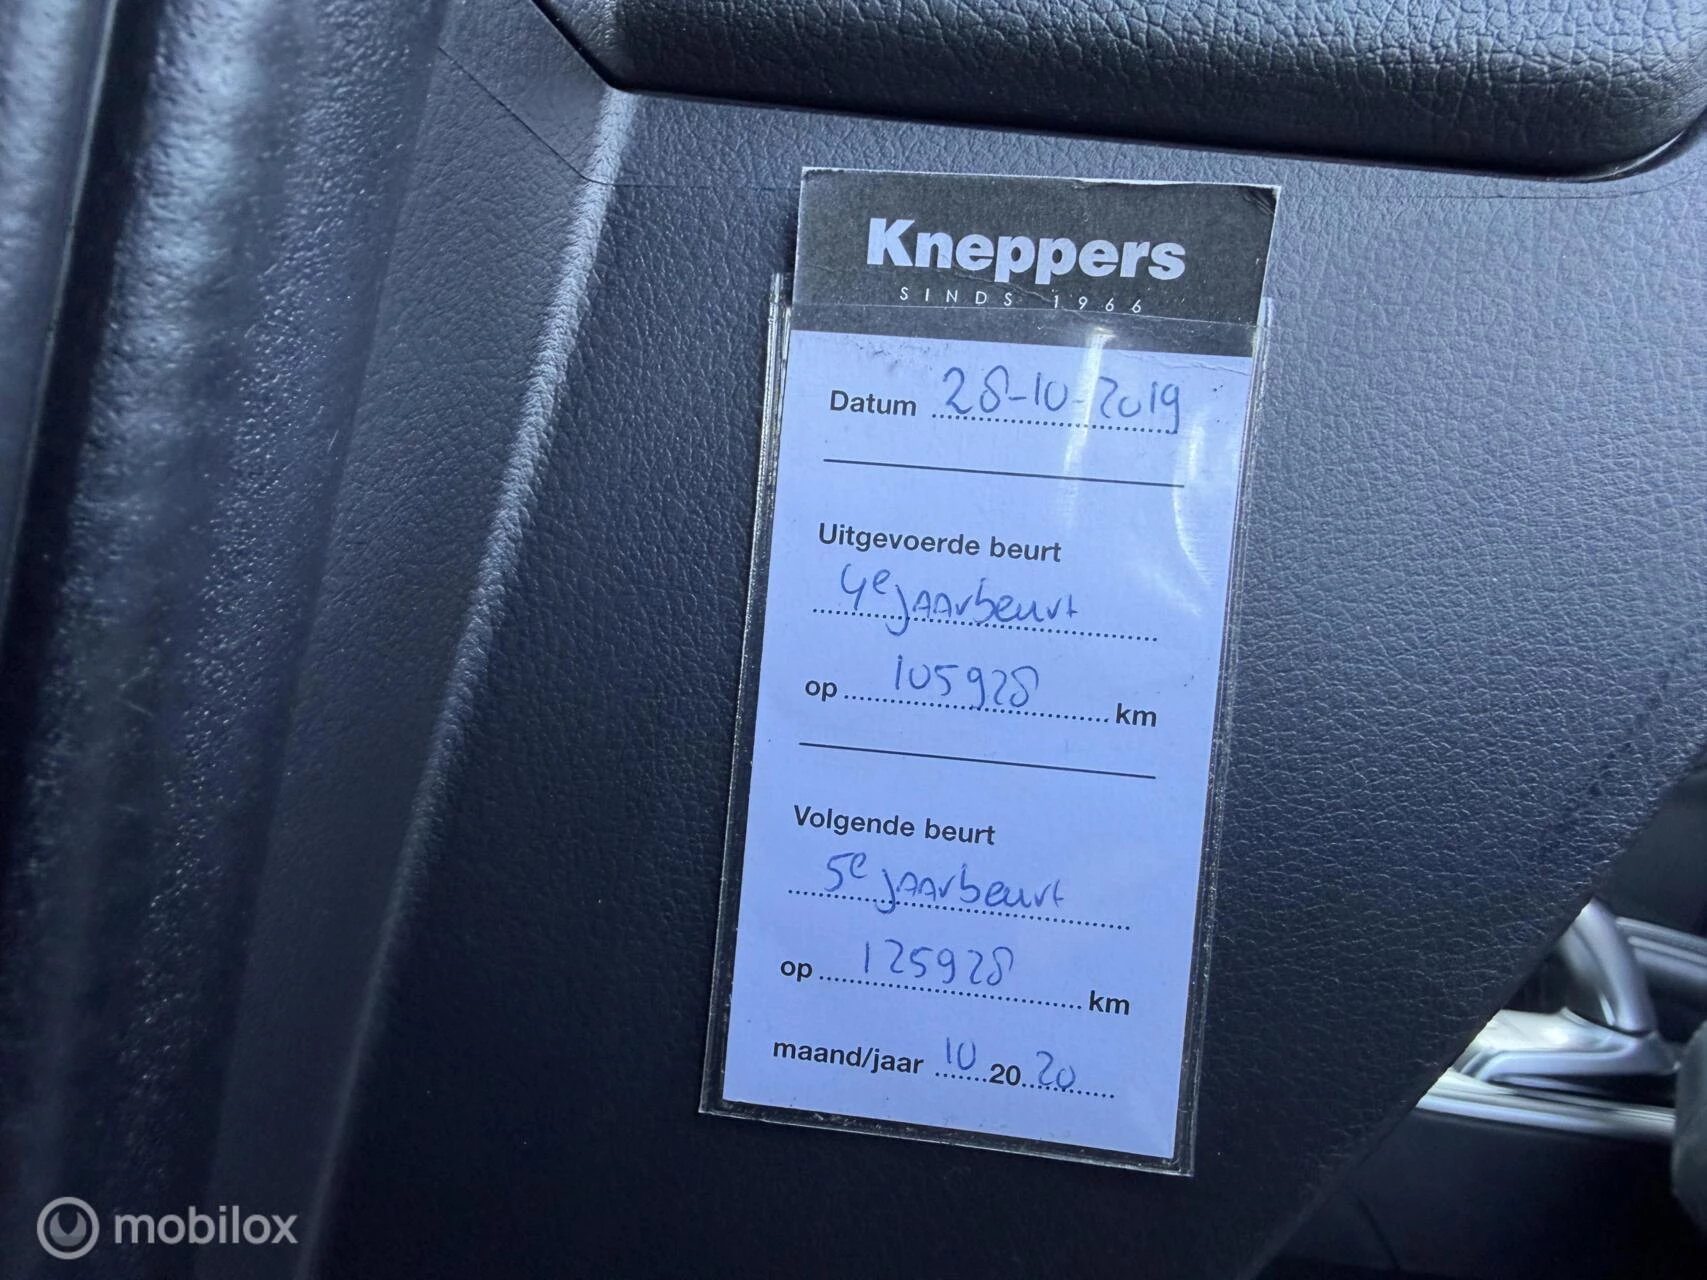 Kneppers
SINDS 1966
Datum 28-10-2019
Uitgevoerde beurt
4e jaarbeurt
op 105928 km
Volgende beurt
5e jaarbeurt
op 125928 km
maand/jaar 10 2020
mobilox